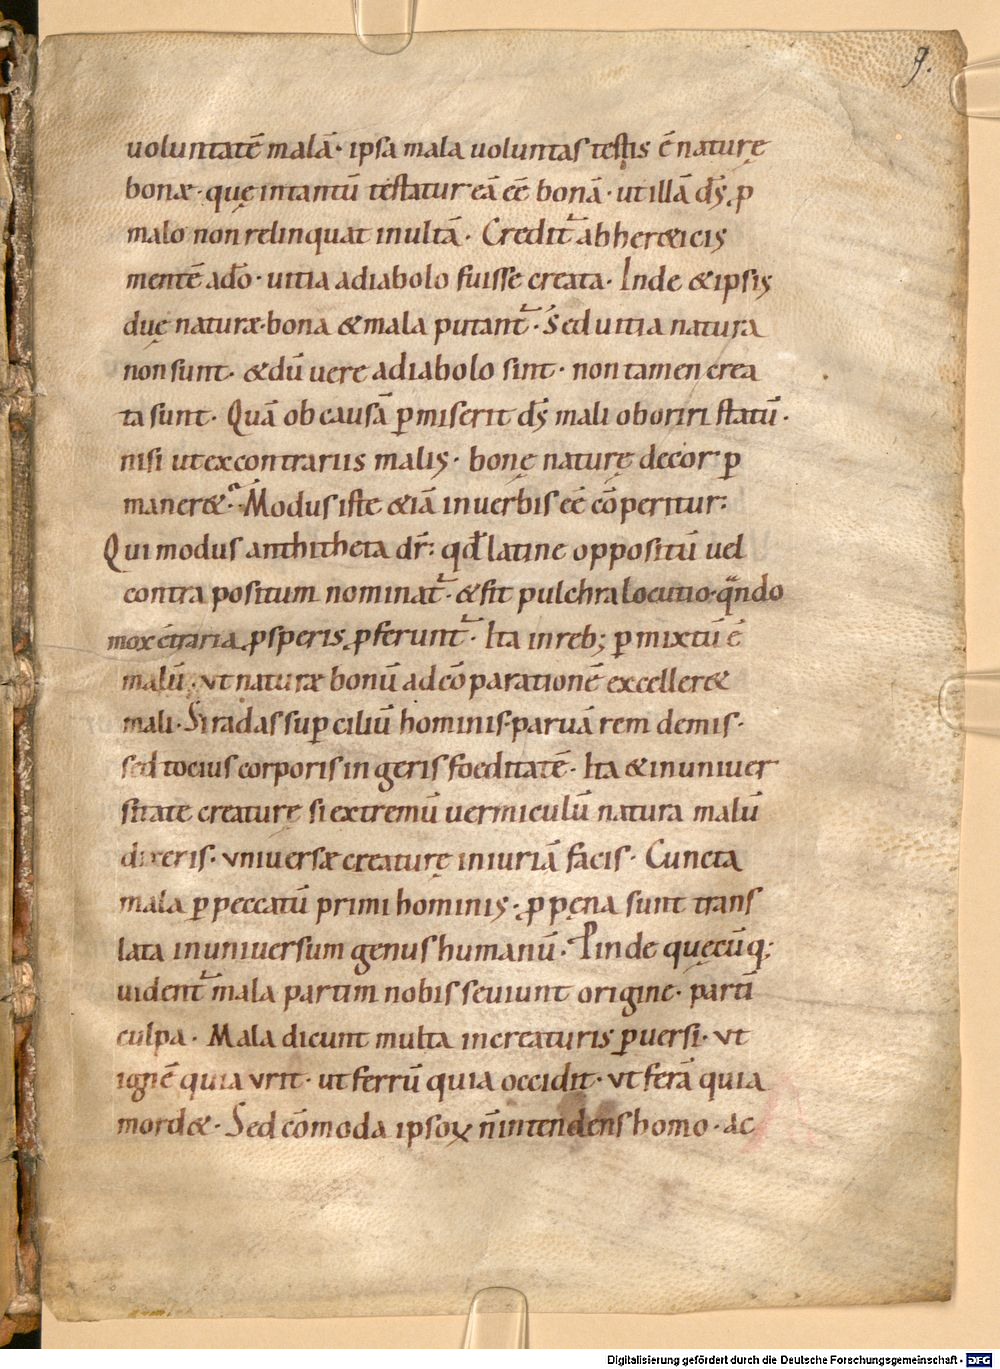 9.
uoluntatē malā· ipsa mala uoluntas testis ē naturę
bonæ· quę intantū testatur eā eē bonā· ut illā dſ̄ p̱
malo non relinquat inultā· Credit᷑ ab her&icis
mentē ado· uitia adiabolo fuisse creata· Inde & ipsis
duę naturæ· bona & mala putant᷑· Sed uitia natura
non sunt· & dū uere adiabolo sint· non tamen crea
ta sunt· Quā ob causā p̱miserit dſ̄ mali oboriri statū·
nisi ut ex contrariis malis· bonę naturę decor p̱
maner&· Modus iste & iā in uerbis eē cōperitur:
Qui modus anthitheta dr̄: qd̄ latine oppositū uel
contra positum nominat᷑· & fit pulchra locutio· qn̄do
mox ꝯtraria ꝓsperis ꝓferunt᷑· Ita in reb; p̱mixtū ē
malū· vt naturæ bonū ad cōparationē exceller&
mali· Si radas sup̱ciliū hominis· paruā rem demis·
sed tocius corporis ingeris foeditatē· Ita & in uniuer
sitate creaturę si extremū uermiculū natura malū
dixeris· vniuersæ creaturę iniuriā facis· Cuncta
mala p̱ peccatū primi hominis· ꝓ pęna sunt trans
lata in uniuersum genus humanū· Pinde quęcūq;
uident᷑ mala partim nobis seuiunt origine· partī
culpa· Mala dicunt multa in creaturis p̱uersi· vt
ignē quia vrit· ut ferrū quia occidit· vt ferā quia
mord&· Sed cōmoda ipsoꝝ n̄ intendens homo· ac
Digitalisierung gefördert durch die Deutsche Forschungsgemeinschaft - DFG